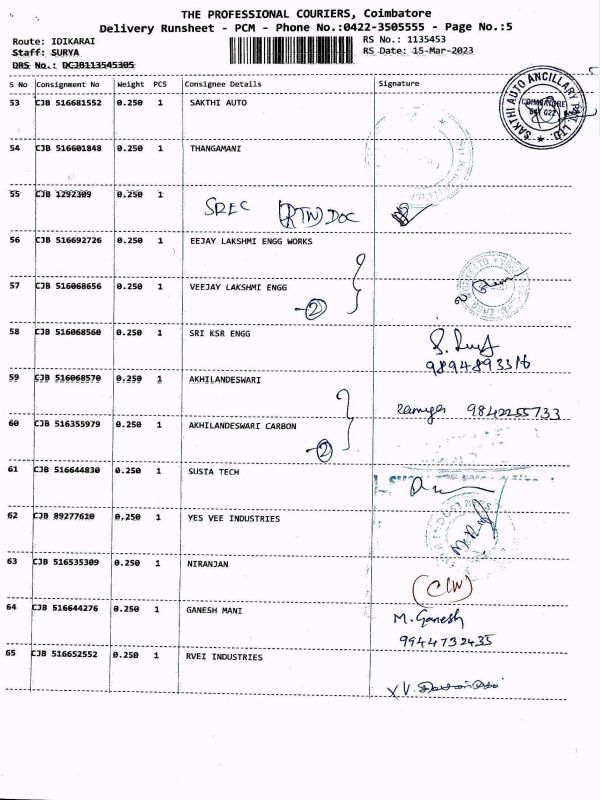 THE PROFESSIONAL COURIERS, Coimbatore
Delivery Runsheet - PCM - Phone No.:0422-3505555 - Page No.:5
Route: IDIKARAI
RS No.: 1135453
Staff: SURYA
RS Date: 15-Mar-2023
DRS No.: DCJB113545305
S No Consignment No Weight PCS Consignee Details Signature
53 CJB 516681552 0.250 1 SAKTHI AUTO
SAKTHI AUTO ANCILLARY PVT. LTD.
COIMBATORE
641 022
54 CJB 516601848 0.250 1 THANGAMANI
55 CJB 1292309 0.250 1
SREC (RTN) DOC
56 CJB 516692726 0.250 1 EEJAY LAKSHMI ENGG WORKS
57 CJB 516068656 0.250 1 VEEJAY LAKSHMI ENGG
2
58 CJB 516068560 0.250 1 SRI KSR ENGG
9894893316
59 CJB 516068570 0.250 1 AKHILANDESWARI
ramya 9842255733
60 CJB 516355979 0.250 1 AKHILANDESWARI CARBON
2
61 CJB 516644830 0.250 1 SUSTA TECH
62 CJB 89277610 0.250 1 YES VEE INDUSTRIES
63 CJB 516535309 0.250 1 NIRANJAN
64 CJB 516644276 0.250 1 GANESH MANI
M. Ganesh
9944732435
65 CJB 516652552 0.250 1 RVEI INDUSTRIES